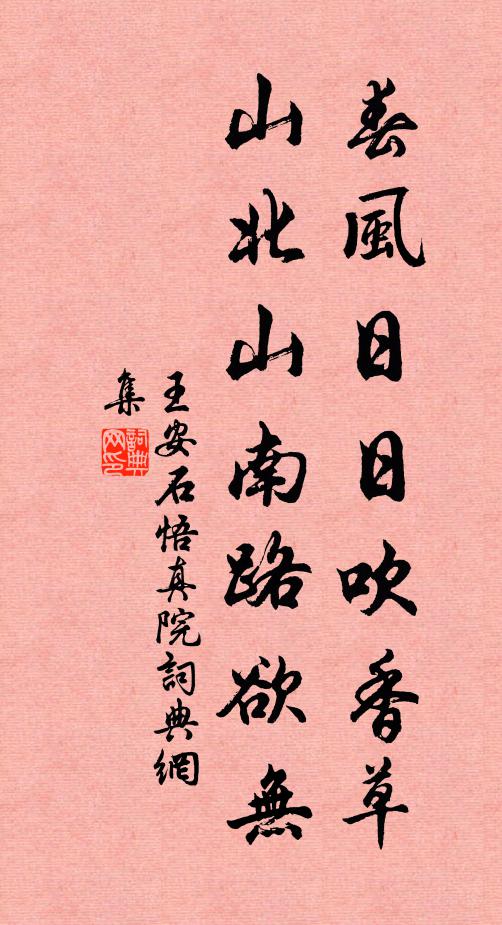 春風日日吹香草
山北山南路欲無
王安石悟真院詞典網
集
詞典網印